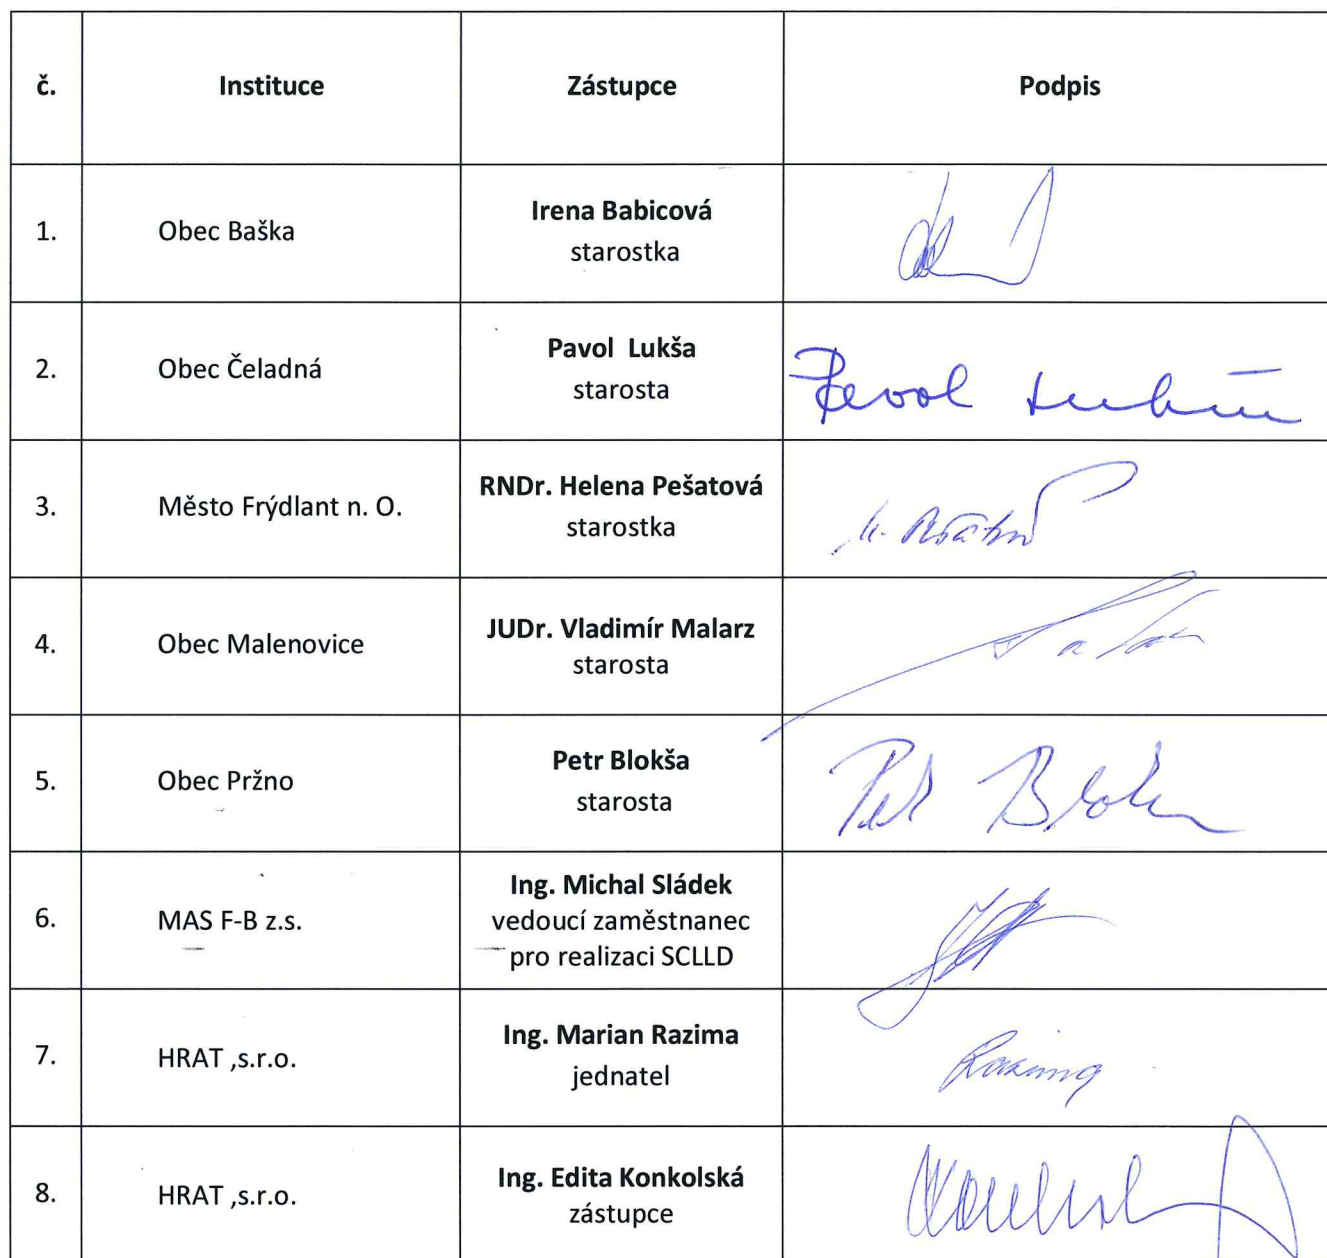 č. Instituce Zástupce Podpis
1. Obec Baška Irena Babicová
starostka
2. Obec Čeladná Pavol Lukša
starosta
3. Město Frýdlant n. O. RNDr. Helena Pešatová
starostka
4. Obec Malenovice JUDr. Vladimír Malarz
starosta
5. Obec Pržno Petr Blokša
starosta
6. MAS F-B z.s. Ing. Michal Sládek
vedoucí zaměstnanec
pro realizaci SCLLD
7. HRAT ,s.r.o. Ing. Marian Razima
jednatel
8. HRAT ,s.r.o. Ing. Edita Konkolská
zástupce